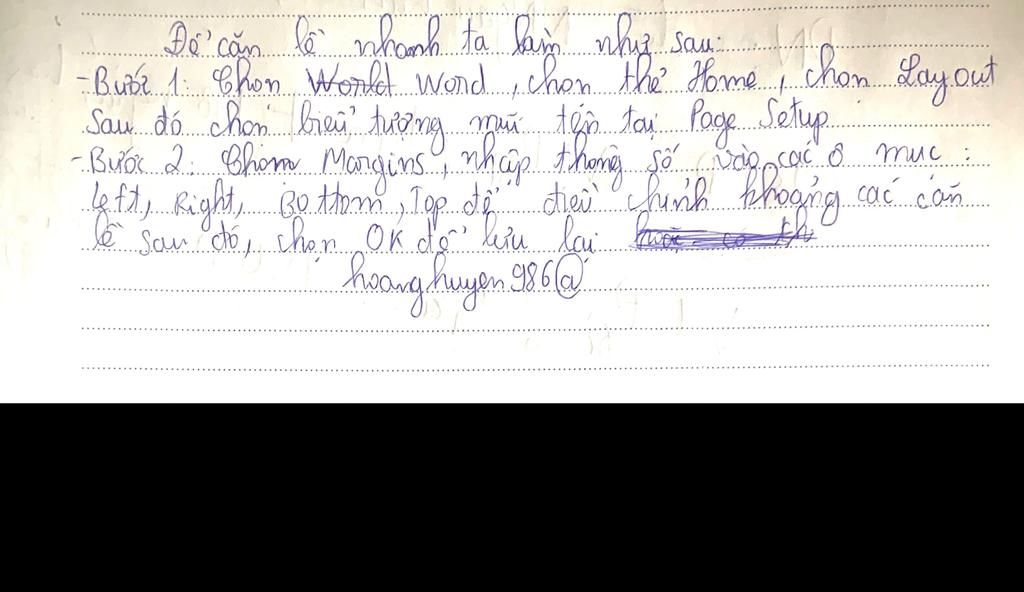 Để căn lề nhanh ta làm như sau:
- Bước 1: Chọn World Word, chọn thẻ Home, chọn Layout
Sau đó chọn biểu tượng mũi tên tại Page Setup
- Bước 2: Chọn Margins, nhập thông số vào các ô mục:
Left, Right, Bottom, Top để điều chỉnh khoảng các căn
lề sau đó, chọn OK để lưu lại
hoanghuyen986@